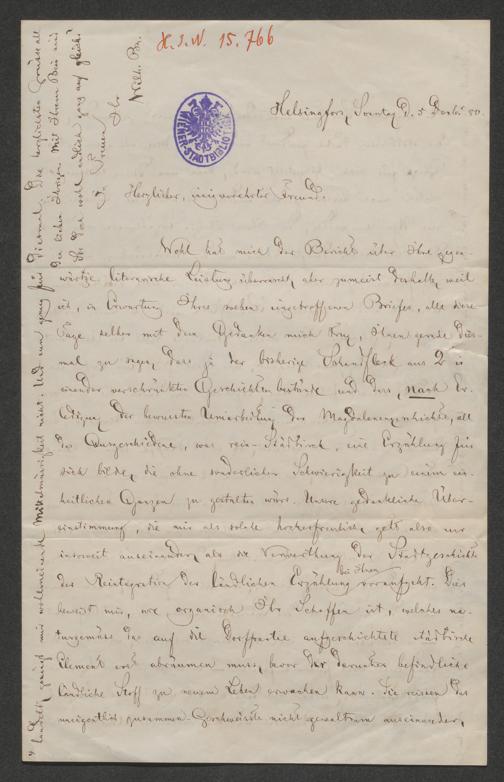 H.I.N. 15.766
WIENER STADTBIBLIOTHEK
Helsingfors, Sonntag d. 5. Dezbr 80.
Herzlicher, innigverehrter Freund.
Wohl hat mich der Bericht über Ihre gegen-
wärtige literarische Leistung überrascht, aber zumeist deshalb, weil
ich, in Erwartung Ihres soeben eingetroffenen Briefes, alle diese
Tage selber mit dem Gedanken mich trug, Ihnen gerade dies-
mal zu sagen, dass ja der bisherige Schandfleck aus 2 in
einander verschränkten Geschichten bestünde und dass, nach Er-
ledigung der bewussten Umarbeitung der Magdalenengeschichte, all
das Ausgeschiedene, was rein städtisch, eine Erzählung für
sich bilde, die ohne sonderliche Schwierigkeit zu einem ein-
heitlichen Ganzen zu gestalten wäre. Unsere gedankliche Über-
einstimmung, die mir als solche hocherfreulich, geht also nur
insoweit auseinander, als die Verwerthung der Stadtgeschichte
der Reintegration der ländlichen Erzählung bei Ihnen voraufgeht. Dies
beweist mir, wie organisch Ihr Schaffen ist, welches na-
turgemäss das auf die Dorfpartie aufgeschichtete städtische
Element erst abräumen muss, bevor der darunter befindliche
ländliche Stoff zu neuem Leben erwachen kann. Sie reissen das
uneigentlich zusammen Geschweisste nicht gewaltsam auseinander,
handelt, genügt mir vollkommen Mittelmässigkeit nicht. Und nun genug für diesmal. Die herzlichsten Grüsse all
den lieben Ihrigen. Mit Ihrem Bein wird
es doch wohl endlich ganz auf gleich?
In Treuen Ihr
Wilh. Bn.